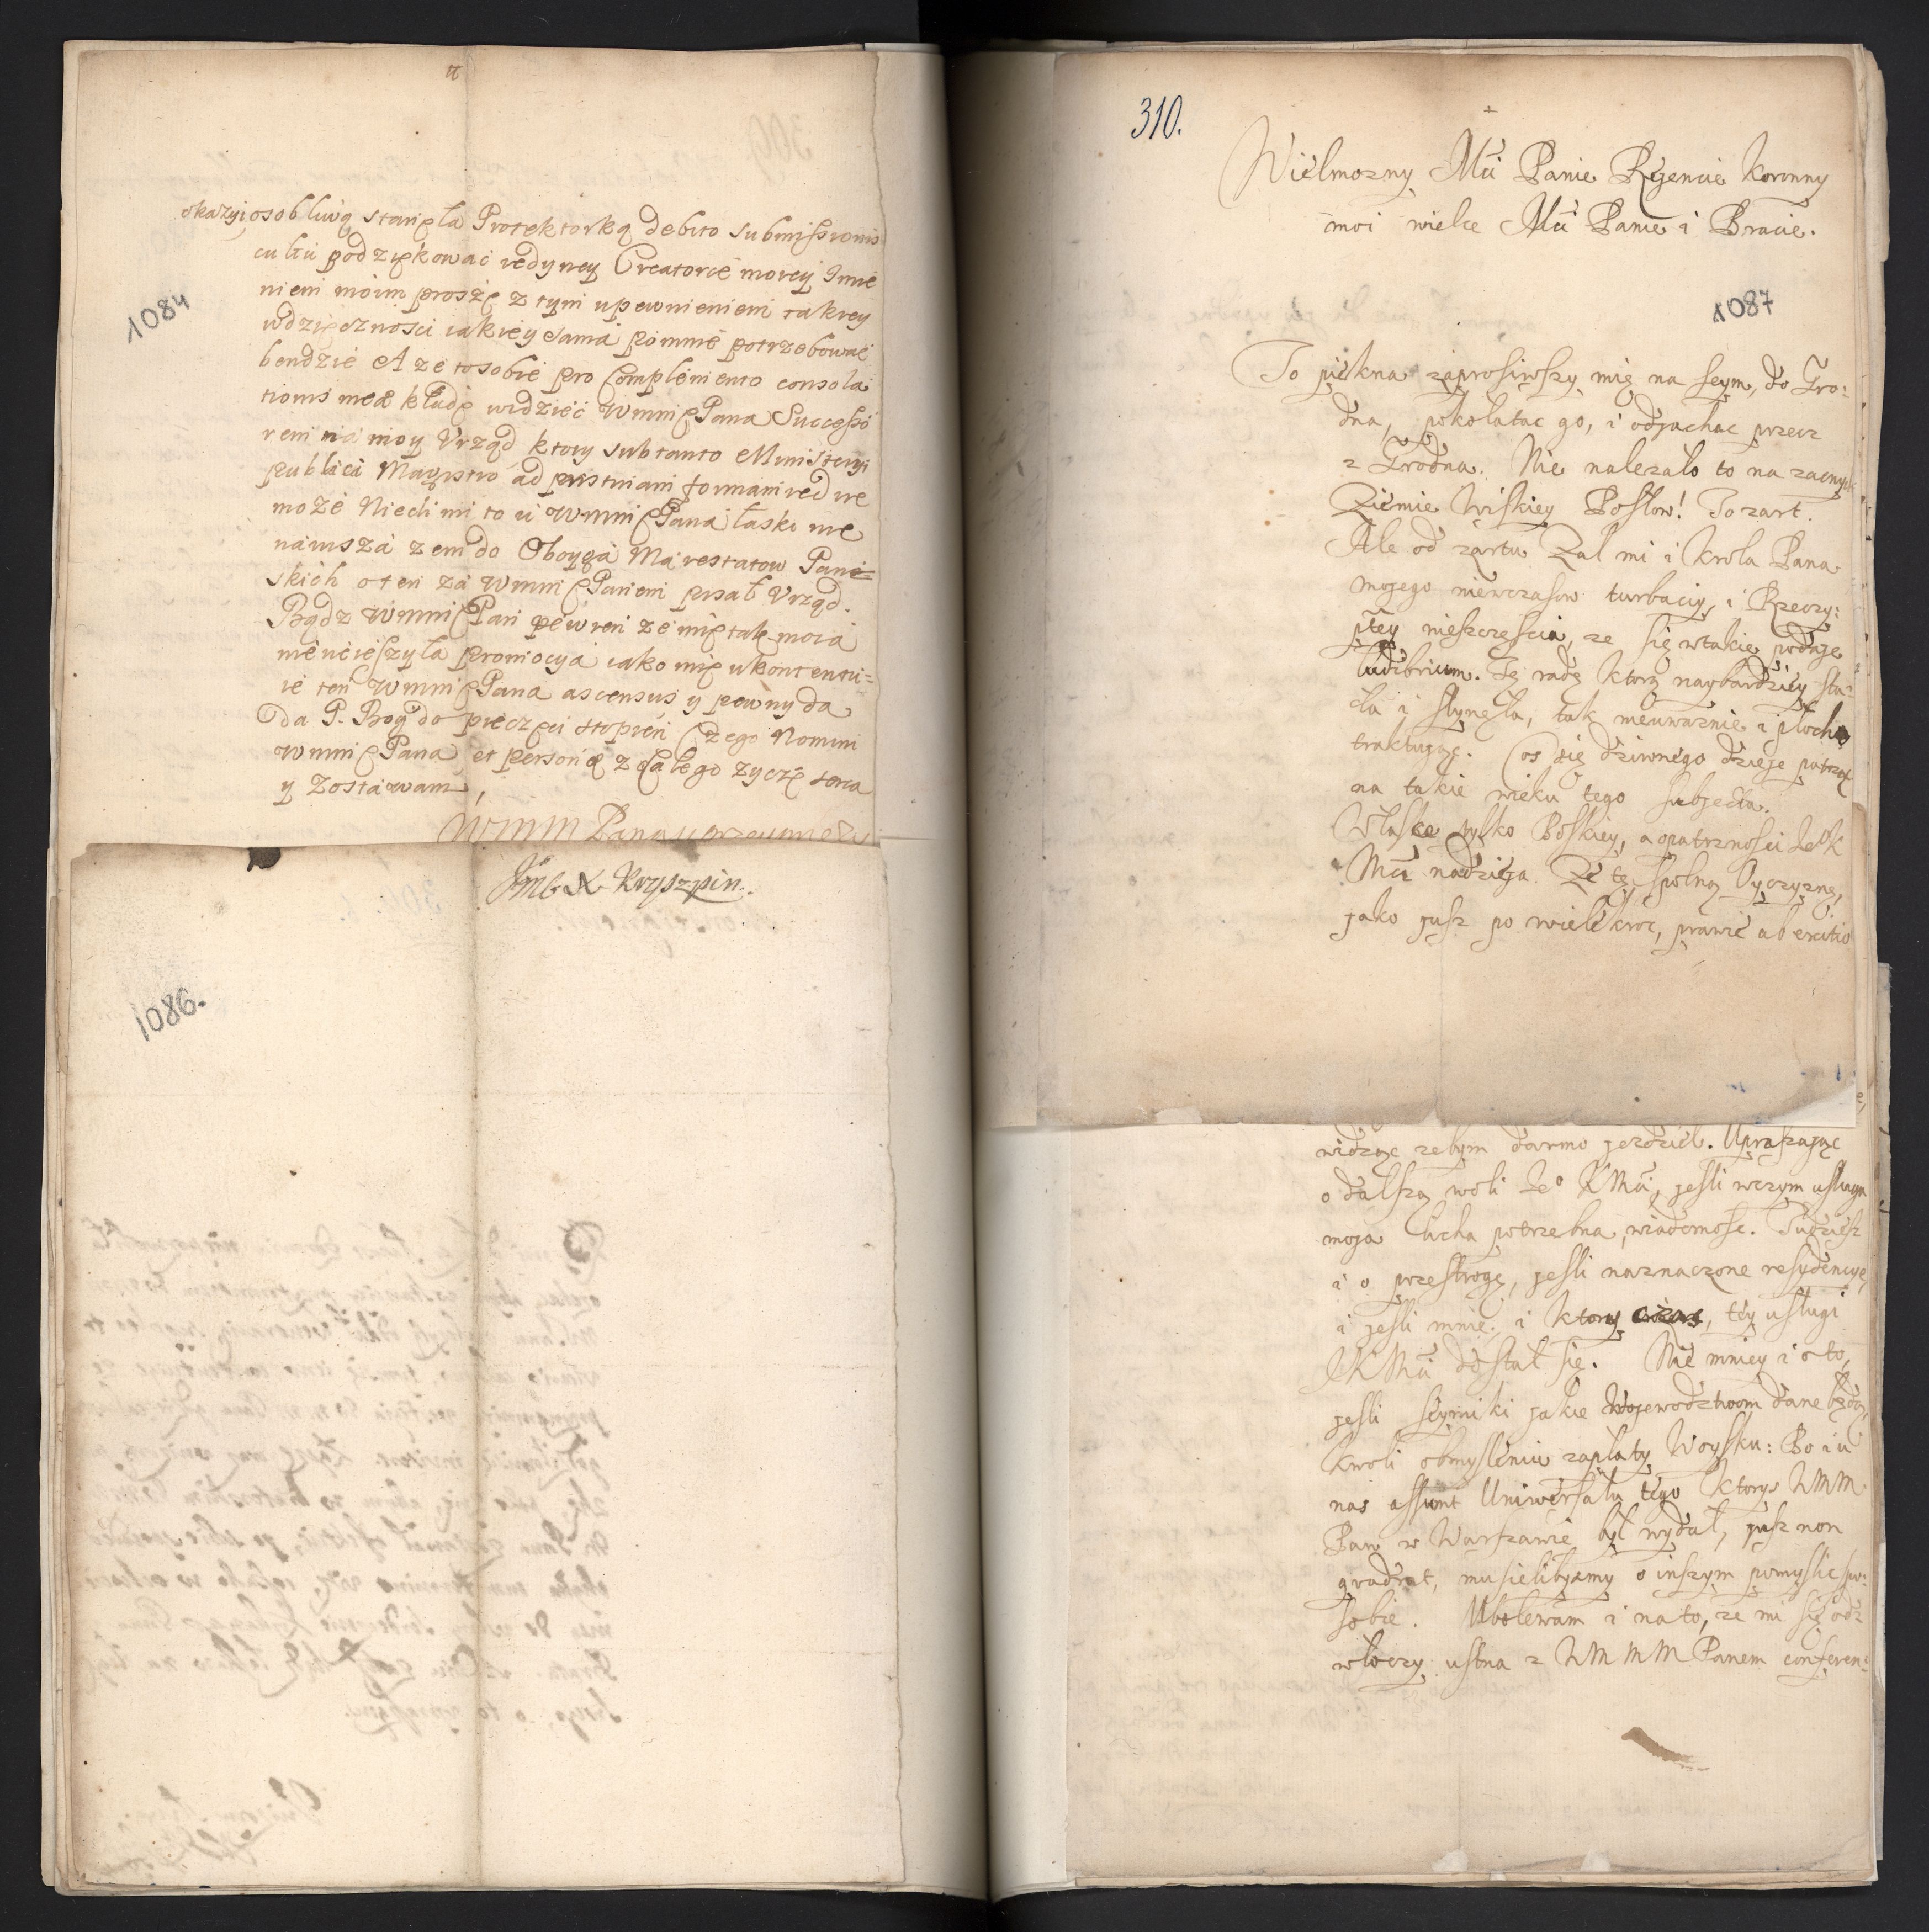 1084
okazyi osobliwą stanęła Protektorką debito submissionis
cultu podziękować iedyney Creatorce moiey Imie
niem moim proszę z tym upewnieniem takiey
wdzięcznosci iakiey sama po mnie potrzebować
bendzie A ze to sobie pro Complemento consola
tionis meæ kładę widzieć WmmęPana Successo
rem na moy Vrząd ktory sub tanto Ministeryi
publici Magistro ad pristinam formam
może Niech mi to u WmmęPana łaski nie
narusza zem do Oboyga Maiestatow Pani=
skich o ten za WmmęPanem pisał Vrząd.
Bądz WmmęPan pewien ze mię tak moia
nie ucieszyła promocya iako mię ukontentu=
ie ten WmmęPana ascensus y pewny da
da P. Bog do pieczęci stopien Czego Nomini
WmmęPana et personæ z całego zyczę serca
y Zostawam,
WMM Pana
1086.
Krzyszpin.
310.
Wielmozny Mći Panie Regencie Koronny
moi wielce Mći Panie i Bracie.
1087
To piękna zaprosiwszy mię na seym, do Gro:
dna, pokolatac go, i odjachac przecz
z Grodna. Nie nalezalo to na zacnych
Ziemie Wiskiey Posłow! To zart.
Ale od zartu Zal mi i Krola Pana
mojego niewczasow turbaciy, i Rzeczy:
ptey nieszczęscia, ze się w takie podaje
ludibrium. Tę radę ktorą naybardziey sta:
ła i słynęła, tak nieuwaznie i płocho
traktując. Cos się dziwnego dzieje patrząc
na takie wieku tego subjecta.
W łasce tylko Boskiey, a opatrznosci Jeo K
Mći nadzieja. Ze tę spolną Oyczyznę,
jako jusz po wielekroc, prawie ab exitio
widząc zebym darmo jezdziel. Upraszając
o dalszą woli Jeo KMći, jesli w czym usługa
moja licha potrzebna, wiadomosc. Tudziesz
i o przestrogę, jesli naznaczone residencye,
i jesli mnie, i ktory czas, tey usługi
JKMći dostał się. Nie mniey i o to,
jesli seymiki jakie Wojewodztwom dane będą,
kwoli obmysleniu zapłaty Woysku: Bo i u
nas assumt Uniwersału tego ktorys WMM
Pan w Warszawie był wydał, jusz non
quadrat, musielibysmy o inszym pomyslic spo:
sobie. Ubolewam i na to, ze mi się od:
włoczy ustna z WMMM Panem conferen: